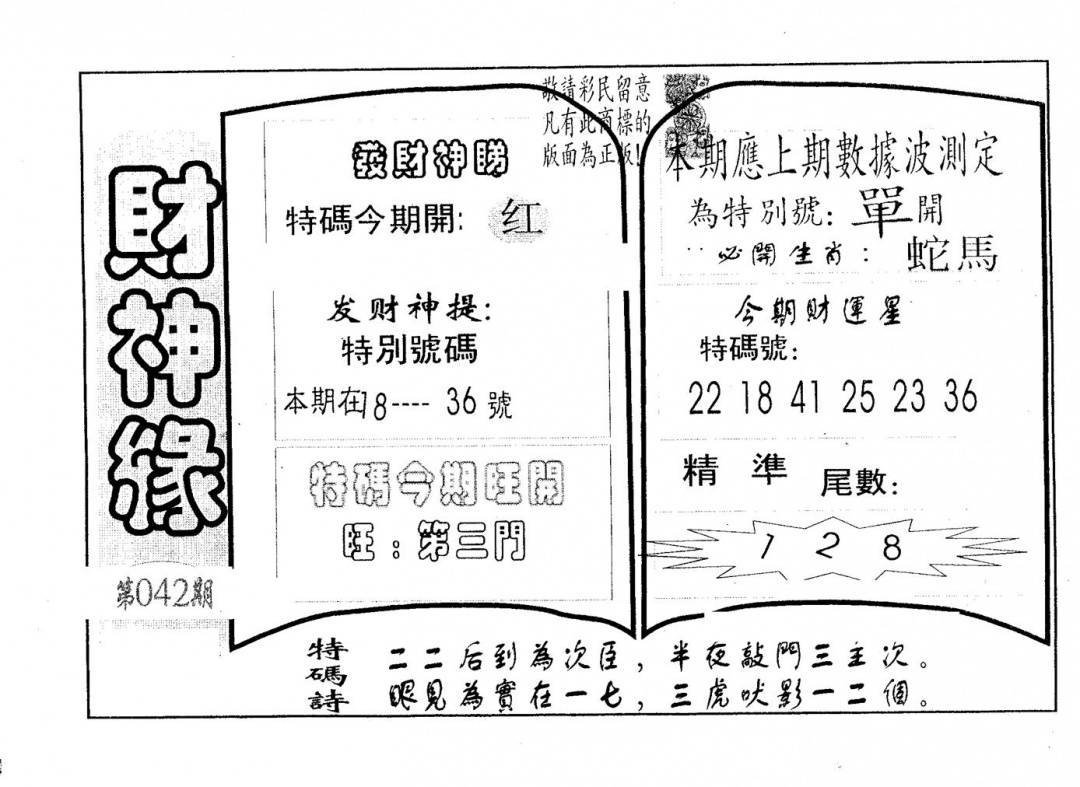 財神緣
第042期
敬請彩民留意
凡有此商標的
版面為正版!
發財神睇
特碼今期開: 红
发财神提:
特別號碼
本期在 8---- 36 號
特碼今期旺開
旺:第三門
本期應上期數據波測定
為特別號: 單開
必開生肖: 蛇馬
今期財運星
特碼號:
22 18 41 25 23 36
精準 尾數:
1 2 8
特碼詩
二二后到為次臣,半夜敲門三主次。
眼見為實在一七,三虎吠影一二個。